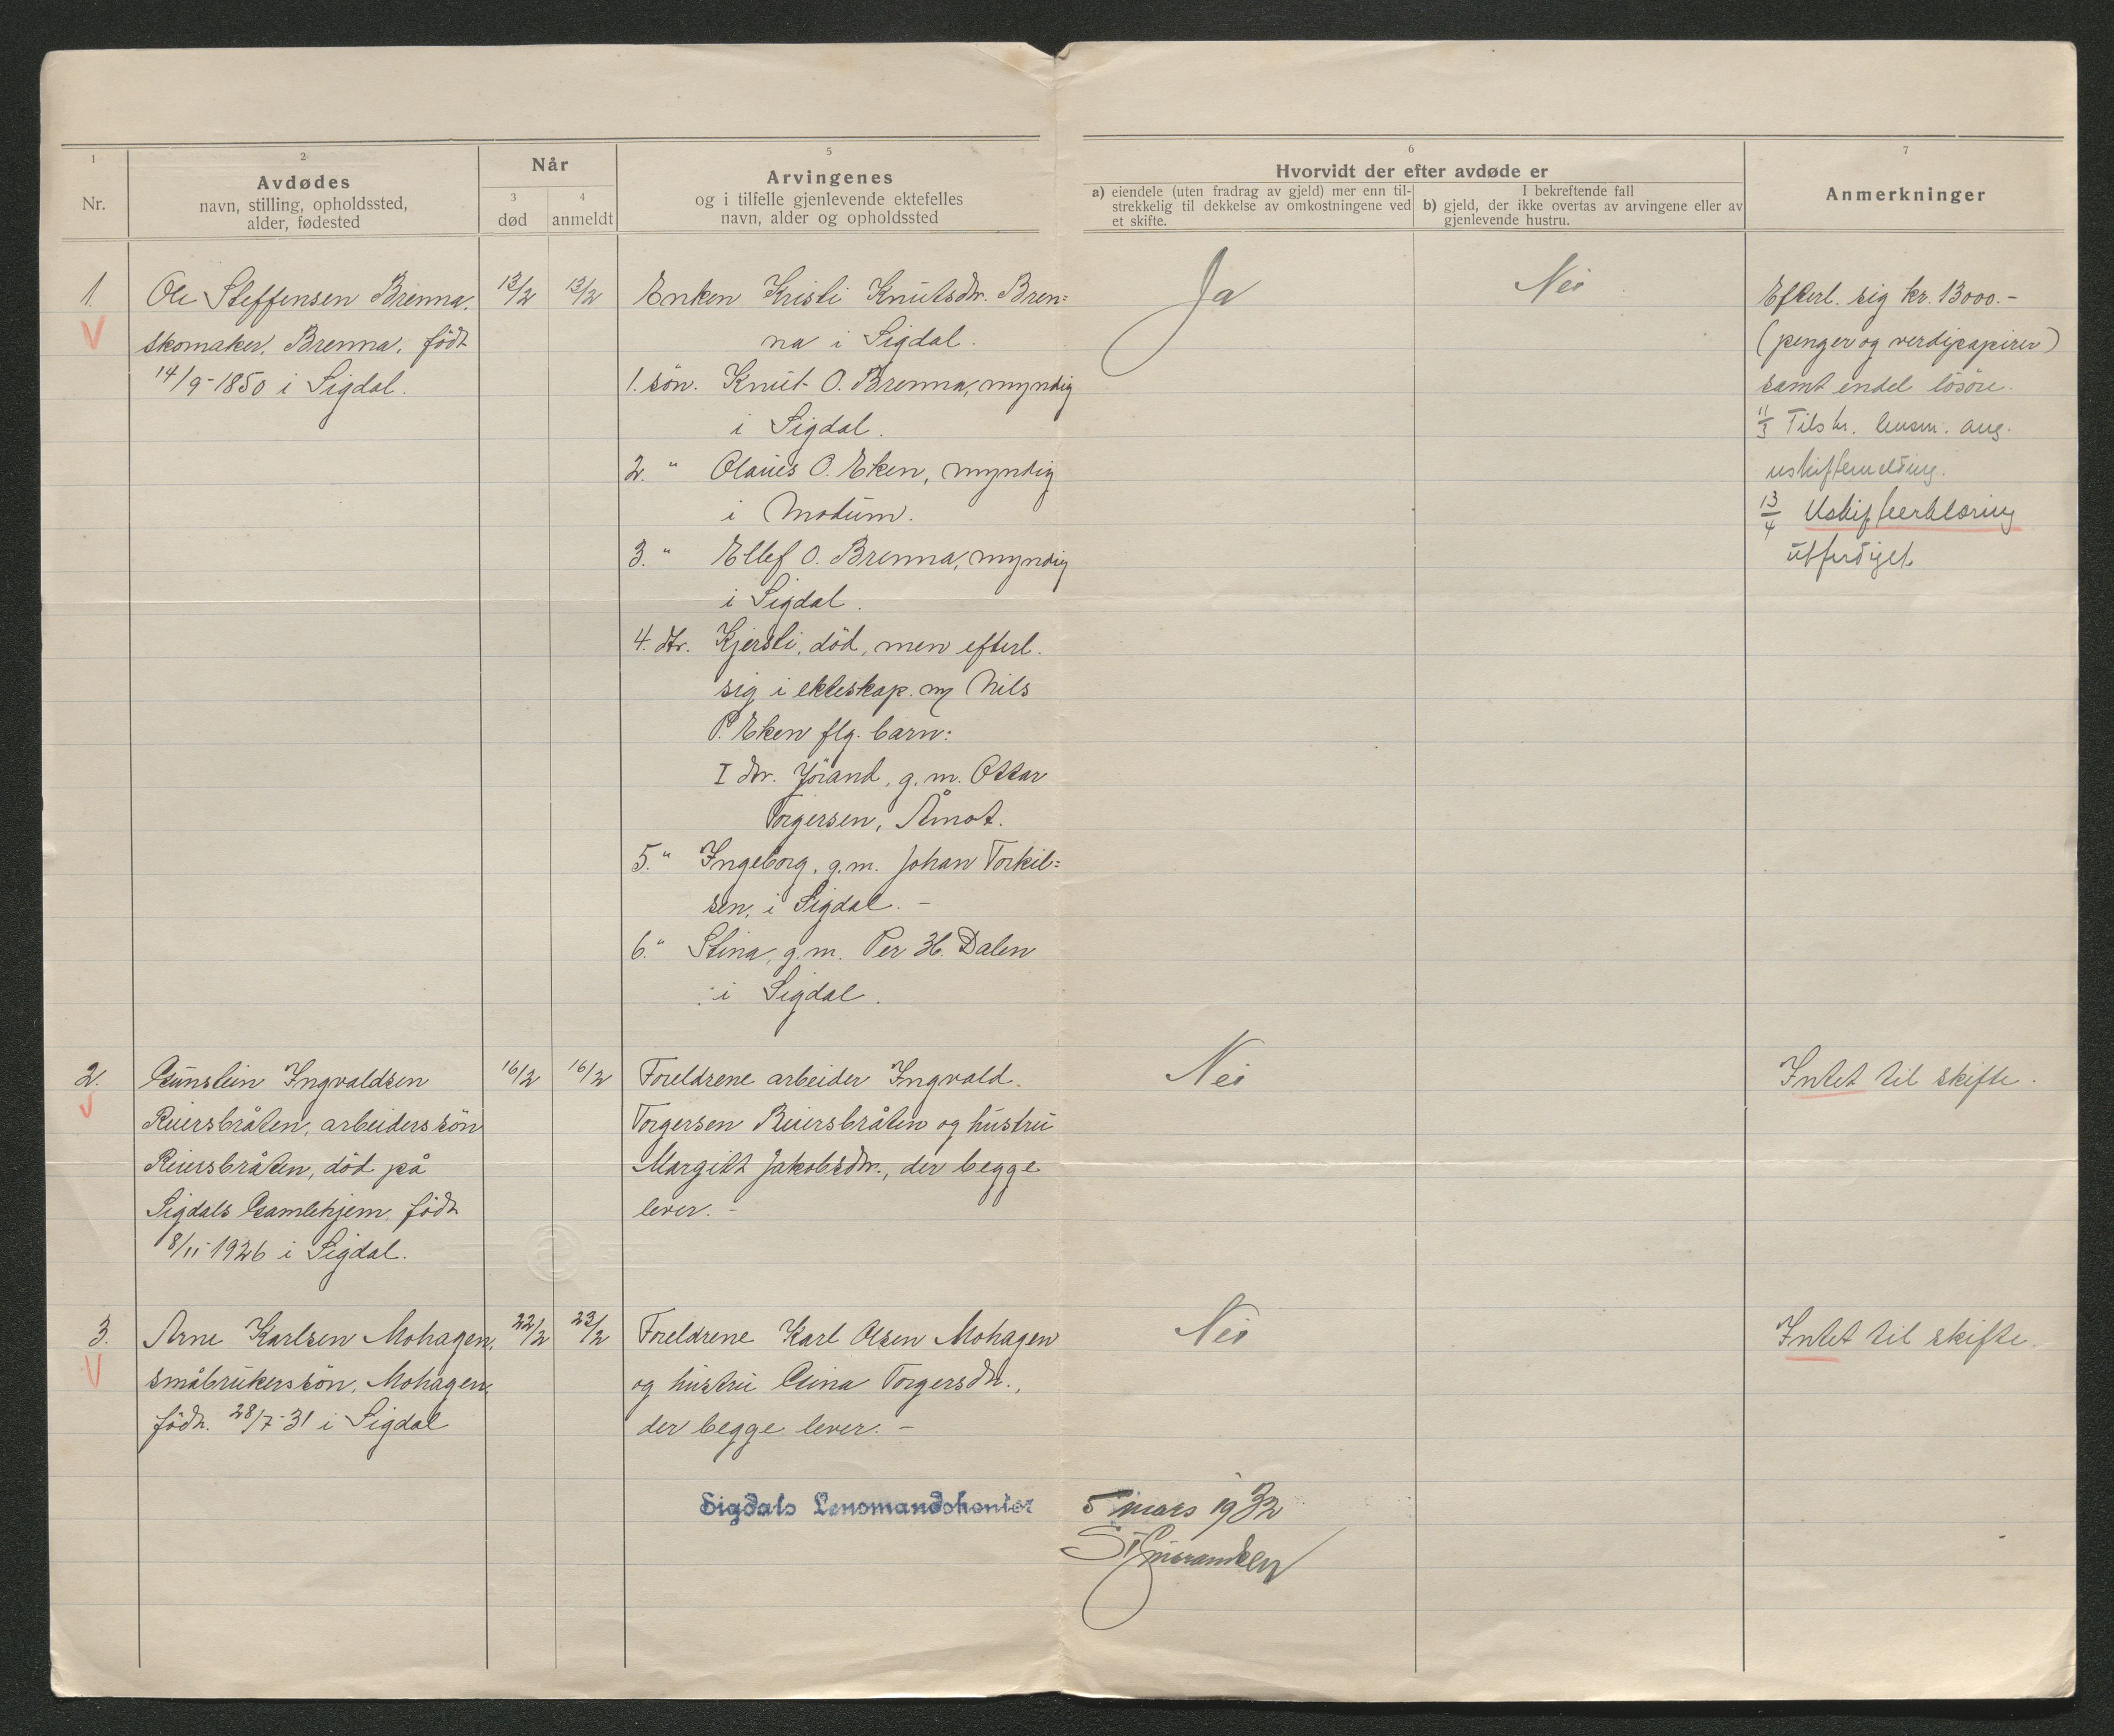 1
2
Avdødes
navn, stilling, opholdssted,
alder, fødested
Nr.
Når
3
død
4
anmeldt
5
Arvingenes
og i tilfelle gjenlevende ektefelles
navn, alder og opholdssted
6
Hvorvidt der efter avdøde er
a) eiendele (uten fradrag av gjeld) mer enn til-
strekkelig til dekkelse av omkostningene ved
et skifte.
I bekreftende fall
b) gjeld, der ikke overtas av arvingene eller av
gjenlevende hustru.
7
Anmerkninger
1.
Ole Steffensen Brenna,
skomaker, Brenna, født
14/9-1850 i Sigdal.
13/2
13/2
Enken Kristi Knutsdtr. Bren=
na i Sigdal.
1. sön. Knut O. Brenna, myndig
i Sigdal.
2. " Olaus O. Eken, myndig
i Modum.
3. " Ellef O. Brenna, myndig
i Sigdal.
4. dtr. Kjersti, död, men efterl.
sig i ekteskap m/ Nils
P. Eken flg. barn:
I dtr. Jörand, g. m. Ottar
Torgersen, Åmot.
5. " Ingeborg, g.m. Johan Torkil=
sen, i Sigdal. -
6. " Stina, g.m. Per H. Dalen
i Sigdal.
Ja
Nei
Efterl. sig kr. 13000.-
(penger og verdipapirer)
samt endel lösöre.
11/3 Tilskr. lensm. ang.
uskiftemelding.
13/4 Uskifteerklæring
utferdiget
2.
Gunstein Ingvaldsen
Reiersbråten, arbeiderssön
Reiersbråten, död på
Sigdals Gamlehjem, födt
8/11-1926 i Sigdal.
16/2
16/2
Foreldrene arbeider Ingvald
Torgersen Reiersbråten og hustru
Margitt Jakobsdtr., der begge
lever. -
Nei
Intet til skifte.
3.
Arne Karlsen Mohagen,
småbrukerssön, Mohagen,
födt 28/7-31 i Sigdal
22/2
23/2
Foreldrene Karl Olsen Mohagen
og hustru Gina Torgersdtr.,
der begge lever. -
Nei
Intet til skifte.
Sigdals Lensmandskontor 5 mars 1932